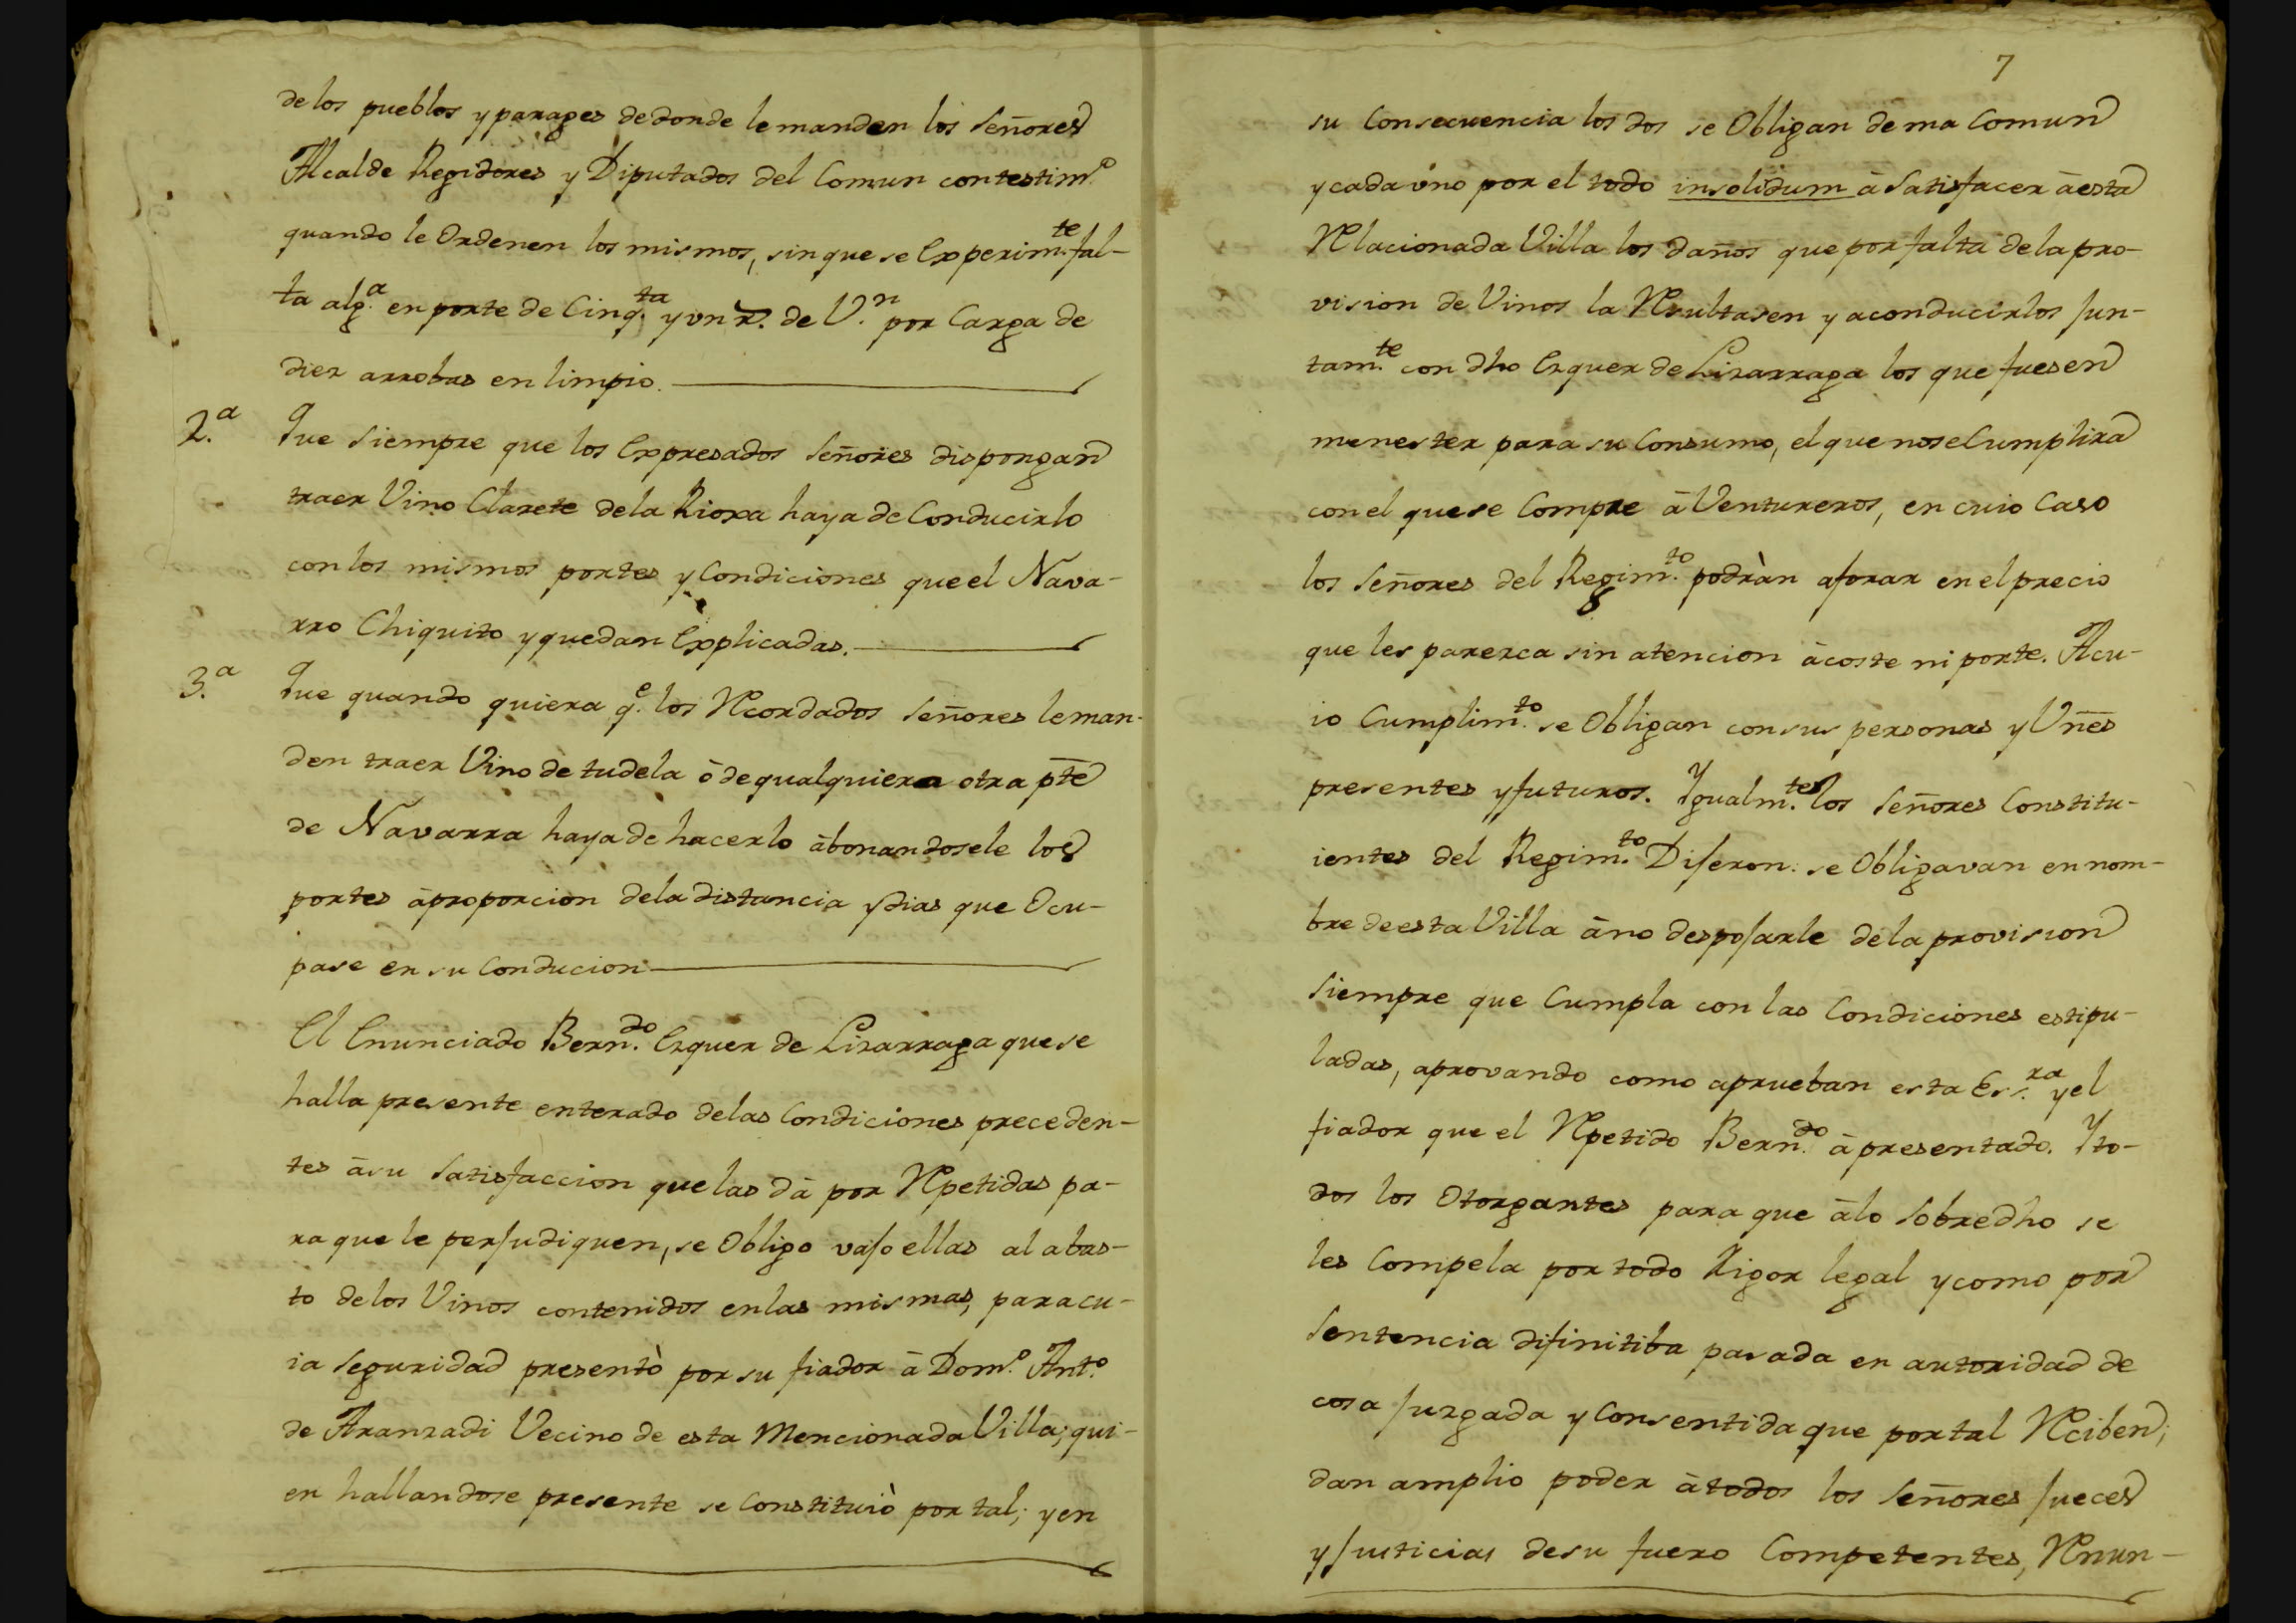 de los pueblos y parages de donde le manden los Señores
Alcalde Regidores y Diputados del Comun con testim.º
quando le Ordenen los mismos, sin que se Experim.te fal-
ta alg.a en porte de Cinq.ta y un r. de V.n por Carga de
diez arrobas en limpio.
2.a Que siempre que los Expresados Señores dispongan
traer Vino Clarete de la Rioxa haya de Conducirlo
con los mismos portes y Condiciones que el Nava-
rro Chiquito y quedan Explicadas.
3.a Que quando quiera q.e los Recordados Señores le man-
den traer Vino de tudela ò de qualquiera otra pte
de Navarra haya de hacerlo àbonandosele los
portes àproporcion de la distancia y dias que Ocu-
pase en su Conducion
El Enunciado Bern.do Ezquer de Lizarraga que se
halla presente enterado de las Condiciones preceden-
tes àsu Satisfaccion que las dà por Repetidas pa-
ra que le perjudiquen, se Obligo vajo ellas al abas-
to de los Vinos contenidos en las mismas, para cu-
ia Seguridad presentò por su fiador à Dom.º Ant.º
de Aranzadi Vecino de esta Mencionada Villa; qui-
en hallandose presente se Constituiò por tal; y en
7
su Consecuencia los dos se Obligan de ma Comun
y cada uno por el todo insolidum à Satisfacer àesta
Relacionada Villa los daños que por falta de la pro-
vision de Vinos la Resultasen y a conducirlos Jun-
tam.te con dho Ezquer de Lizarraga los que fuesen
menester para su Consumo, el que no se Cumplira
con el que se Compre à Ventureros, en cuio Caso
los Señores del Regim.to podràn aforar en el precio
que les parezca sin atencion àcoste ni porte. A cu-
io Cumplim.to se Obligan con sus personas y Vnes
presentes y futuros. Ygualm.te los Señores Constitu-
ientes del Regim.to Dijeron: se Obligavan en nom-
bre de esta Villa àno despojarle de la provision
Siempre que Cumpla con las Condiciones estipu-
ladas, aprovando como aprueban esta Ess.ra y el
fiador que el Repetido Bern.do à presentado. Y to-
dos los Otorgantes para que àlo Sobredho se
les Compela por todo Rigor legal y como por
Sentencia difinitiba pasada en autoridad de
cosa Juzgada y Consentida que por tal Reciben;
dan amplio poder àtodos los Señores Jueces
y Justicias de su fuero Competentes, Renun-